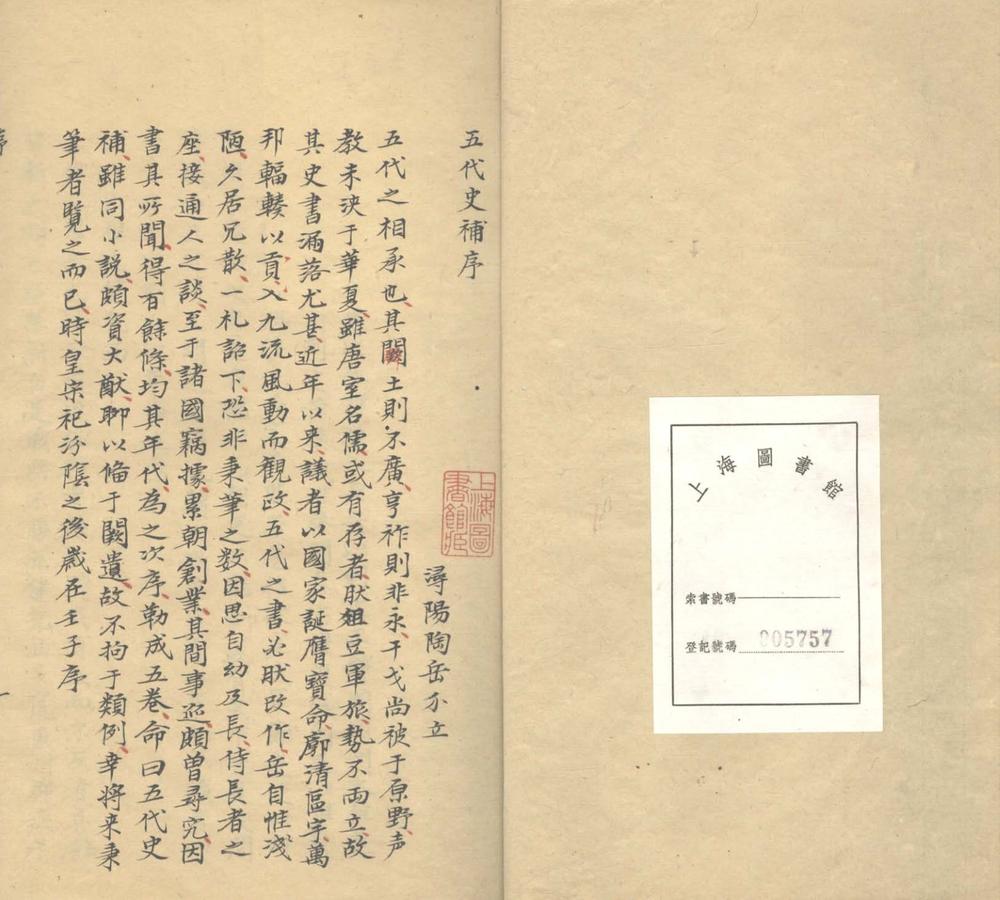 上海圖書館
索書號碼
登記號碼 005757
五代史補序
潯陽陶岳介立
上海圖書館藏
五代之相承也其闢土則不廣享祚則非永干戈尚被于原野声
教未浹于華夏雖唐室名儒或有存者肰俎豆軍旅勢不両立故
其史書漏落尤甚近年以来議者以國家誕膺寶命廓清區宇萬
邦輻輳以貢入九流風動而觀政五代之書必肰改作岳自惟淺
陋久居冗散一札詔下恐非秉筆之数因思自幼及長侍長者之
座接通人之談至于諸國竊據累朝創業其間事迹頗曽尋究因
書其所聞得百餘條均其年代為之次序勒成五卷命曰五代史
補雖同小説頗資大猷聊以俻于闕遺故不拘于類例幸将来秉
筆者覧之而已時皇宋祀汾隂之後歲在壬子序
序
一